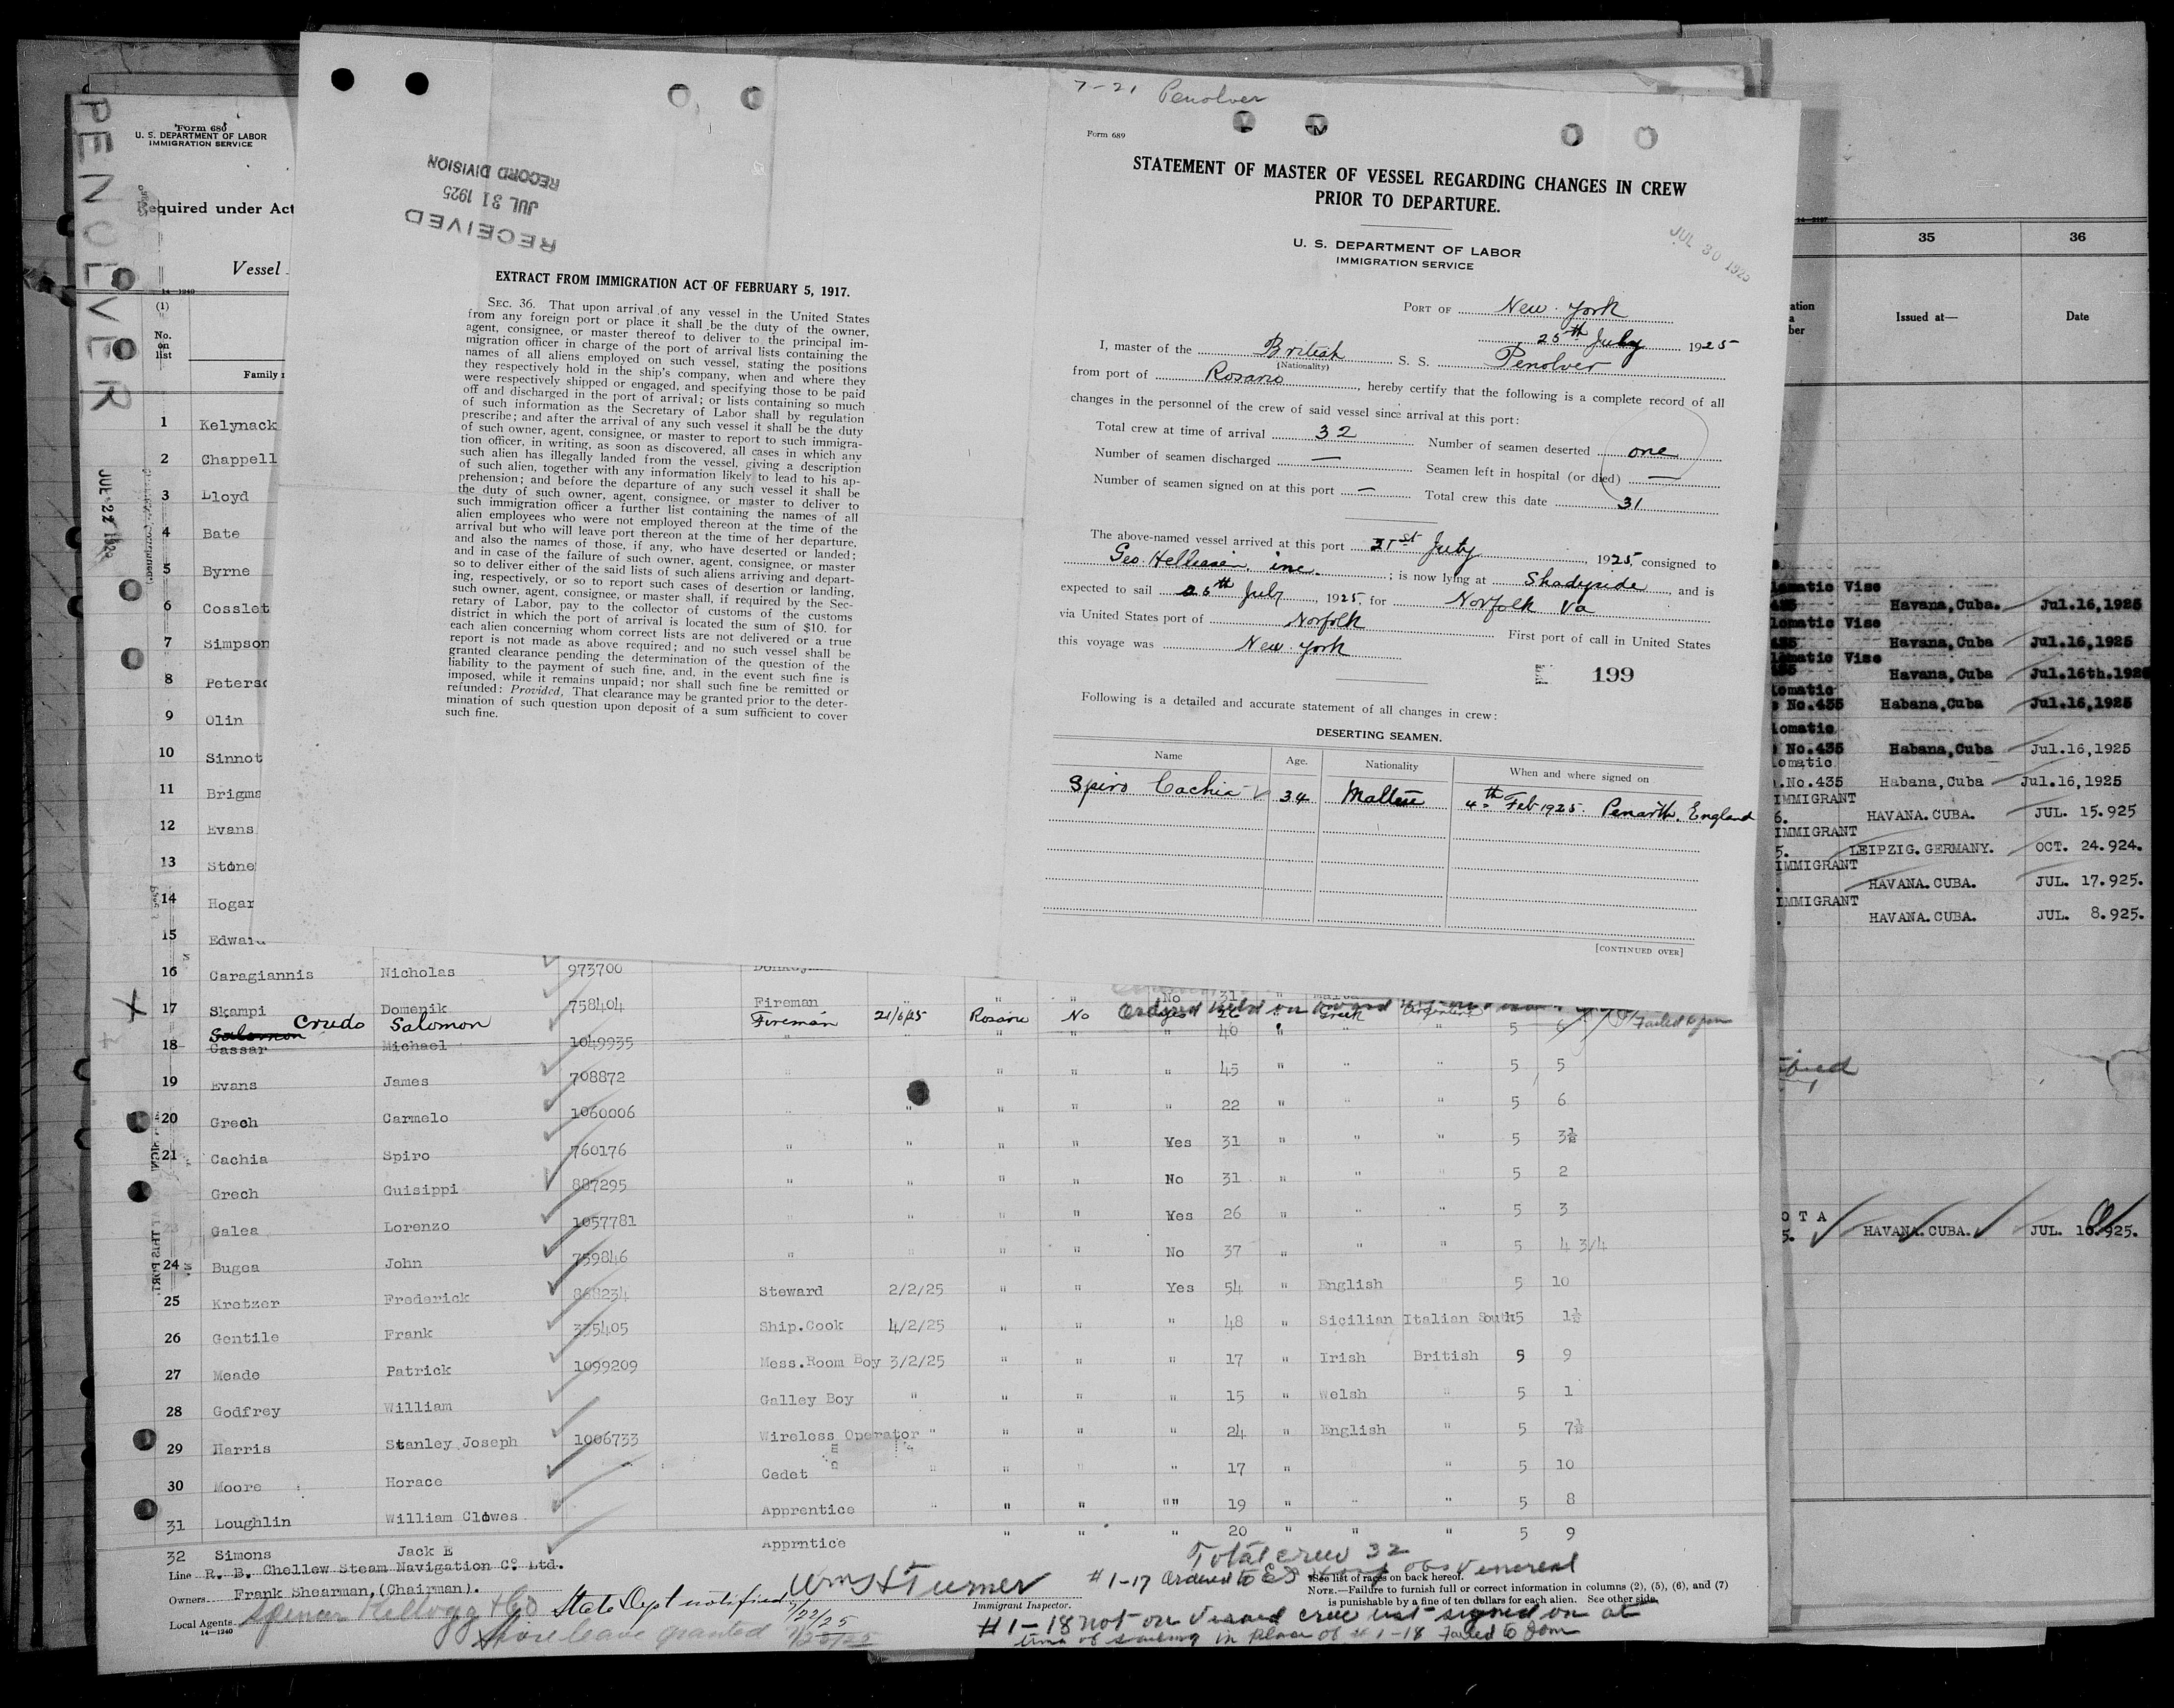 PENOLVER
Form 680
U. S. DEPARTMENT OF LABOR
IMMIGRATION SERVICE
equired under Act
Vessel
14—1240
(1)
No.
on
list
Family
1 Kelynack
2 Chappell
3 Lloyd
4 Bate
5 Byrne
6 Cosslet
7 Simpson
8 Peterso
9 Olin
10 Sinnot
11 Brigma
12 Evans
13 Stone
14 Hogar
15 Edwar
RECEIVED
JUL 31 1925
RECORD DIVISION
EXTRACT FROM IMMIGRATION ACT OF FEBRUARY 5, 1917.
SEC. 36. That upon arrival of any vessel in the United States
from any foreign port or place it shall be the duty of the owner,
agent, consignee, or master thereof to deliver to the principal im-
migration officer in charge of the port of arrival lists containing the
names of all aliens employed on such vessel, stating the positions
they respectively hold in the ship's company, when and where they
were respectively shipped or engaged, and specifying those to be paid
off and discharged in the port of arrival; or lists containing so much
of such information as the Secretary of Labor shall by regulation
prescribe; and after the arrival of any such vessel it shall be the duty
of such owner, agent, consignee, or master to report to such immigra-
tion officer, in writing, as soon as discovered, all cases in which any
such alien has illegally landed from the vessel, giving a description
of such alien, together with any information likely to lead to his ap-
prehension; and before the departure of any such vessel it shall be
the duty of such owner, agent, consignee, or master to deliver to
such immigration officer a further list containing the names of all
alien employees who were not employed thereon at the time of the
arrival but who will leave port thereon at the time of her departure,
and also the names of those, if any, who have deserted or landed;
and in case of the failure of such owner, agent, consignee, or master
so to deliver either of the said lists of such aliens arriving and depart-
ing, respectively, or so to report such cases of desertion or landing,
such owner, agent, consignee, or master shall, if required by the Sec-
retary of Labor, pay to the collector of customs of the customs
district in which the port of arrival is located the sum of $10. for
each alien concerning whom correct lists are not delivered or a true
report is not made as above required; and no such vessel shall be
granted clearance pending the determination of the question of the
liability to the payment of such fine, and, in the event such fine is
imposed, while it remains unpaid; nor shall such fine be remitted or
refunded: Provided, That clearance may be granted prior to the deter-
mination of such question upon deposit of a sum sufficient to cover
such fine.
7-21 Penolver
Form 689
STATEMENT OF MASTER OF VESSEL REGARDING CHANGES IN CREW
PRIOR TO DEPARTURE.
U. S. DEPARTMENT OF LABOR
IMMIGRATION SERVICE
JUL 30 1925
PORT OF New York
25th July 1925
I, master of the British S. S. Penolver
(Nationality)
from port of Rosario, hereby certify that the following is a complete record of all
changes in the personnel of the crew of said vessel since arrival at this port:
Total crew at time of arrival 32 Number of seamen deserted one
Number of seamen discharged — Seamen left in hospital (or died) —
Number of seamen signed on at this port — Total crew this date 31
The above-named vessel arrived at this port 21st July, 1925, consigned to
Geo. Helliesen, inc.; is now lying at Shadyside, and is
expected to sail 25th July, 1925, for Norfolk Va
via United States port of Norfolk First port of call in United States
this voyage was New York
E 199
Following is a detailed and accurate statement of all changes in crew:
DESERTING SEAMEN.
Name Age. Nationality When and where signed on
Spiro Cachia 34 Maltese 4th Feb 1925. Penarth, England
[CONTINUED OVER]
16 Caragiannis Nicholas 973700
17 Skampi Domenik 758404 Fireman " " No 31 "
Salomon Crudo Salomon Fireman 21/6/25 Rosario No Yes 26 Greek Failed to join
18 Cassar Michael 1049935 " " " " 40 5 6
19 Evans James 708872 " " " " 45 " " " 5 5
20 Grech Carmelo 1060006 " " " " " 22 " " " 5 6
21 Cachia Spiro 760176 " " " " Yes 31 " " " 5 3½
Grech Guisippi 887295 " " " " No 31 " " " 5 2
23 Galea Lorenzo 1057781 " " " " Yes 26 " " " 5 3
24 Bugea John 759846 " " " " No 37 " " " 5 4 3/4
25 Kretzer Frederick 868234 Steward 2/2/25 " " Yes 54 " English " 5 10
26 Gentile Frank 335405 Ship.Cook 4/2/25 " " " 48 " Sicilian Italian South 5 1½
27 Meade Patrick 1099209 Mess.Room Boy 3/2/25 " " " 17 " Irish British 5 9
28 Godfrey William Galley Boy " " " " 15 " Welsh " 5 1
29 Harris Stanley Joseph 1006733 Wireless Operator " " " " 24 " English " 5 7½
30 Moore Horace Cedet " " " " 17 " " 5 10
31 Loughlin William Clowes Apprentice " " " "" 19 " " " 5 8
32 Simons Jack E Apprntice " " " 20 " " " 5 9
Line R. B. Chellew Steam Navigation Co. Ltd.
Owners Frank Shearman,(Chairman).
Local Agents Spencer Kellogg & Co
14—1240
State Dept notified 7/22/25
Shore leave granted 7/23/25
Wm H Turner
Immigrant Inspector.
Total crew 32
#1-17 Ordered to E.I. Hosp obs Venereal
See list of races on back hereof.
NOTE.—Failure to furnish full or correct information in columns (2), (5), (6), and (7)
is punishable by a fine of ten dollars for each alien. See other side.
#1-18 not on Visaed crew list signed on at
time of sailing in place of #1-18 Failed to Join
14—2107
35 36
Issued at— Date
Havana,Cuba. Jul.16,1925
Havana,Cuba Jul.16,1925
Havana,Cuba Jul.16th.192
No.435 Habana,Cuba Jul.16,1925
No.435 Habana,Cuba Jul.16,1925
No.435 Habana,Cuba Jul.16,1925
IMMIGRANT
HAVANA.CUBA. JUL. 15.925
IMMIGRANT
LEIPZIG.GERMANY. OCT. 24.924.
IMMIGRANT
HAVANA.CUBA. JUL. 17.925.
IMMIGRANT
HAVANA.CUBA. JUL. 8.925.
O T A
HAVANA.CUBA. JUL. 10.925.